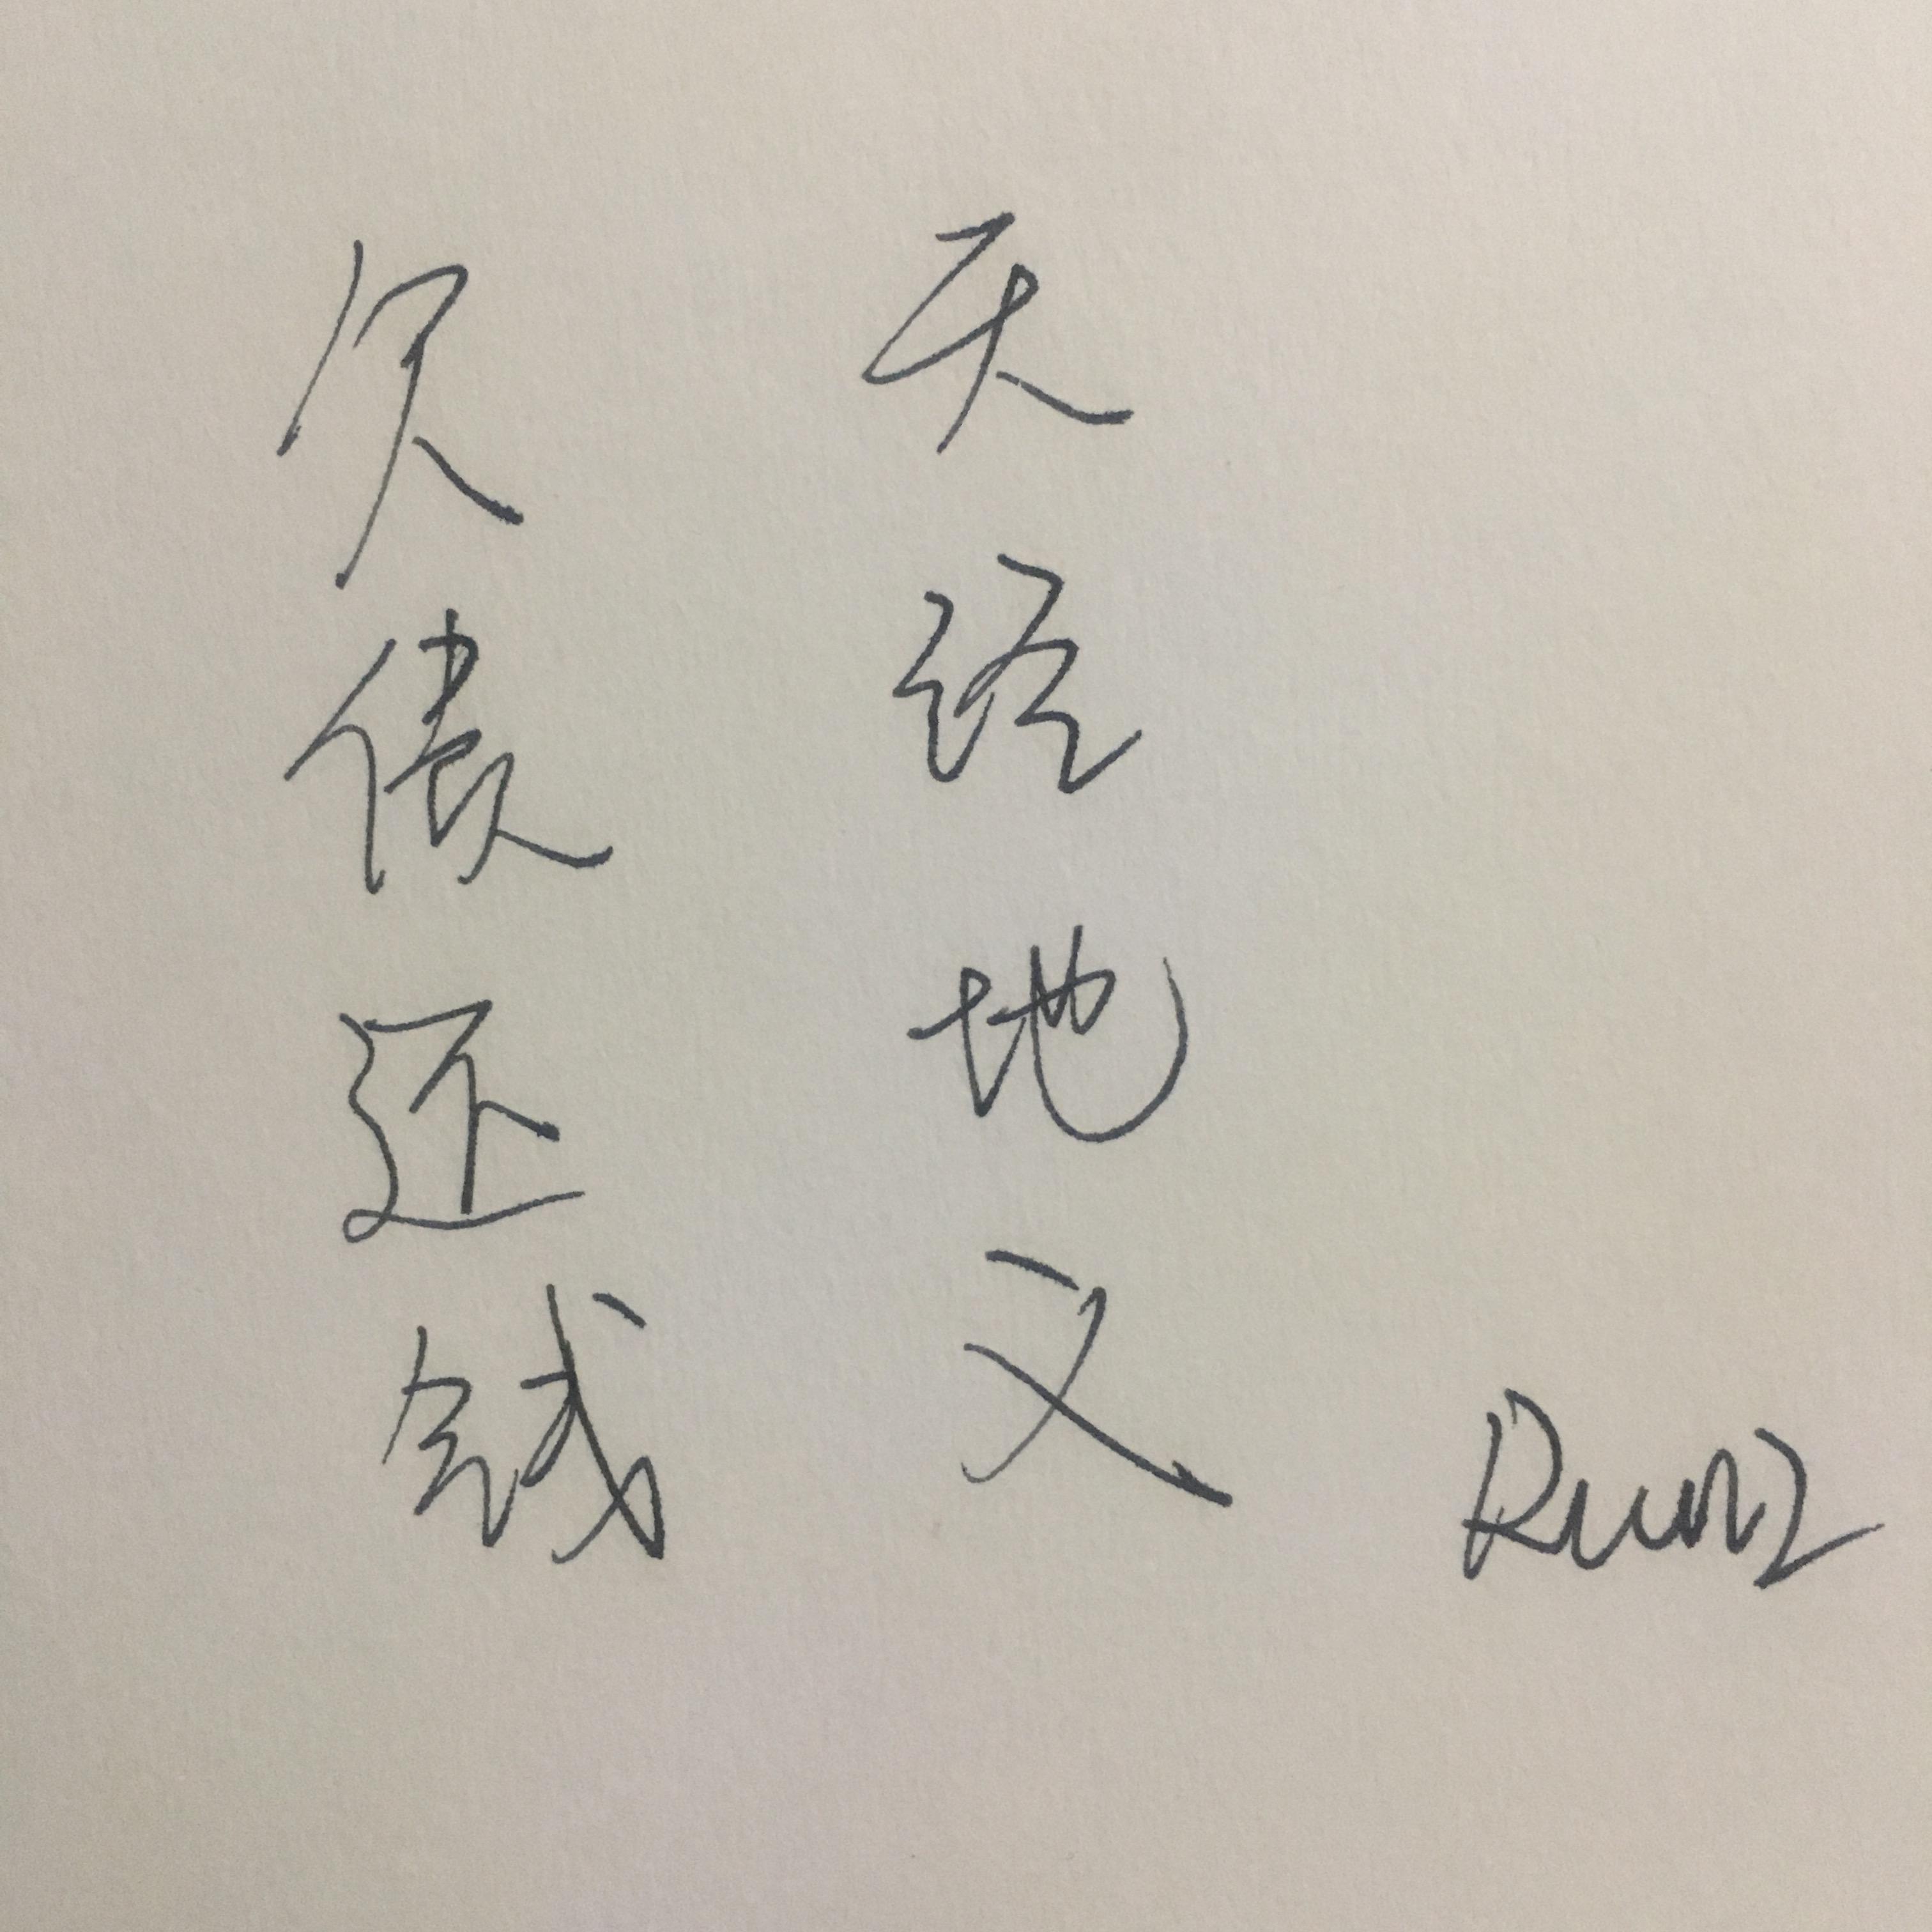 欠债还钱
天经地义
Runz